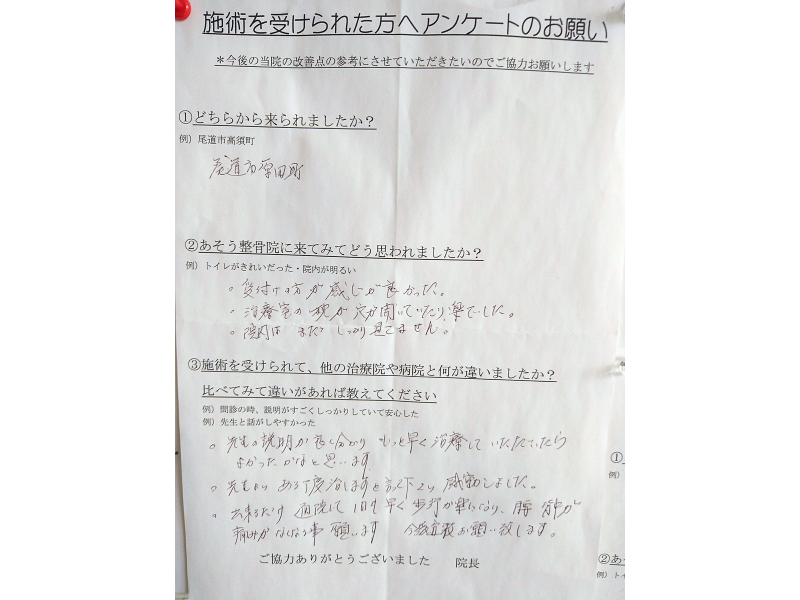 施術を受けられた方へアンケートのお願い
＊今後の当院の改善点の参考にさせていただきたいのでご協力お願いします
①どちらから来られましたか？
例）尾道市高須町
尾道市原田町
②あそう整骨院に来てみてどう思われましたか？
例）トイレがきれいだった・院内が明るい
。受付けの方が感じが良かった。
。治療室の枕が穴が開いていたり、楽でした。
。院内は まだ しっかり見てません。
③施術を受けられて、他の治療院や病院と何が違いましたか？
比べてみて違いがあれば教えてください
例）問診の時、説明がすごくしっかりしていて安心した
例）先生と話がしやすかった
。先生の説明が良く分かり もっと早く治療していただいていたら
よかったかなと思います
。先生から ある丁度治しますと言って下さり 感動しました。
。出来るだけ 通院して 1日も早く歩行が楽になり、腰 背中が
痛みがなくなる事 願います 今後宜敷お願い致します。
ご協力ありがとうございました 院長
①
例）
②あ
例）ト